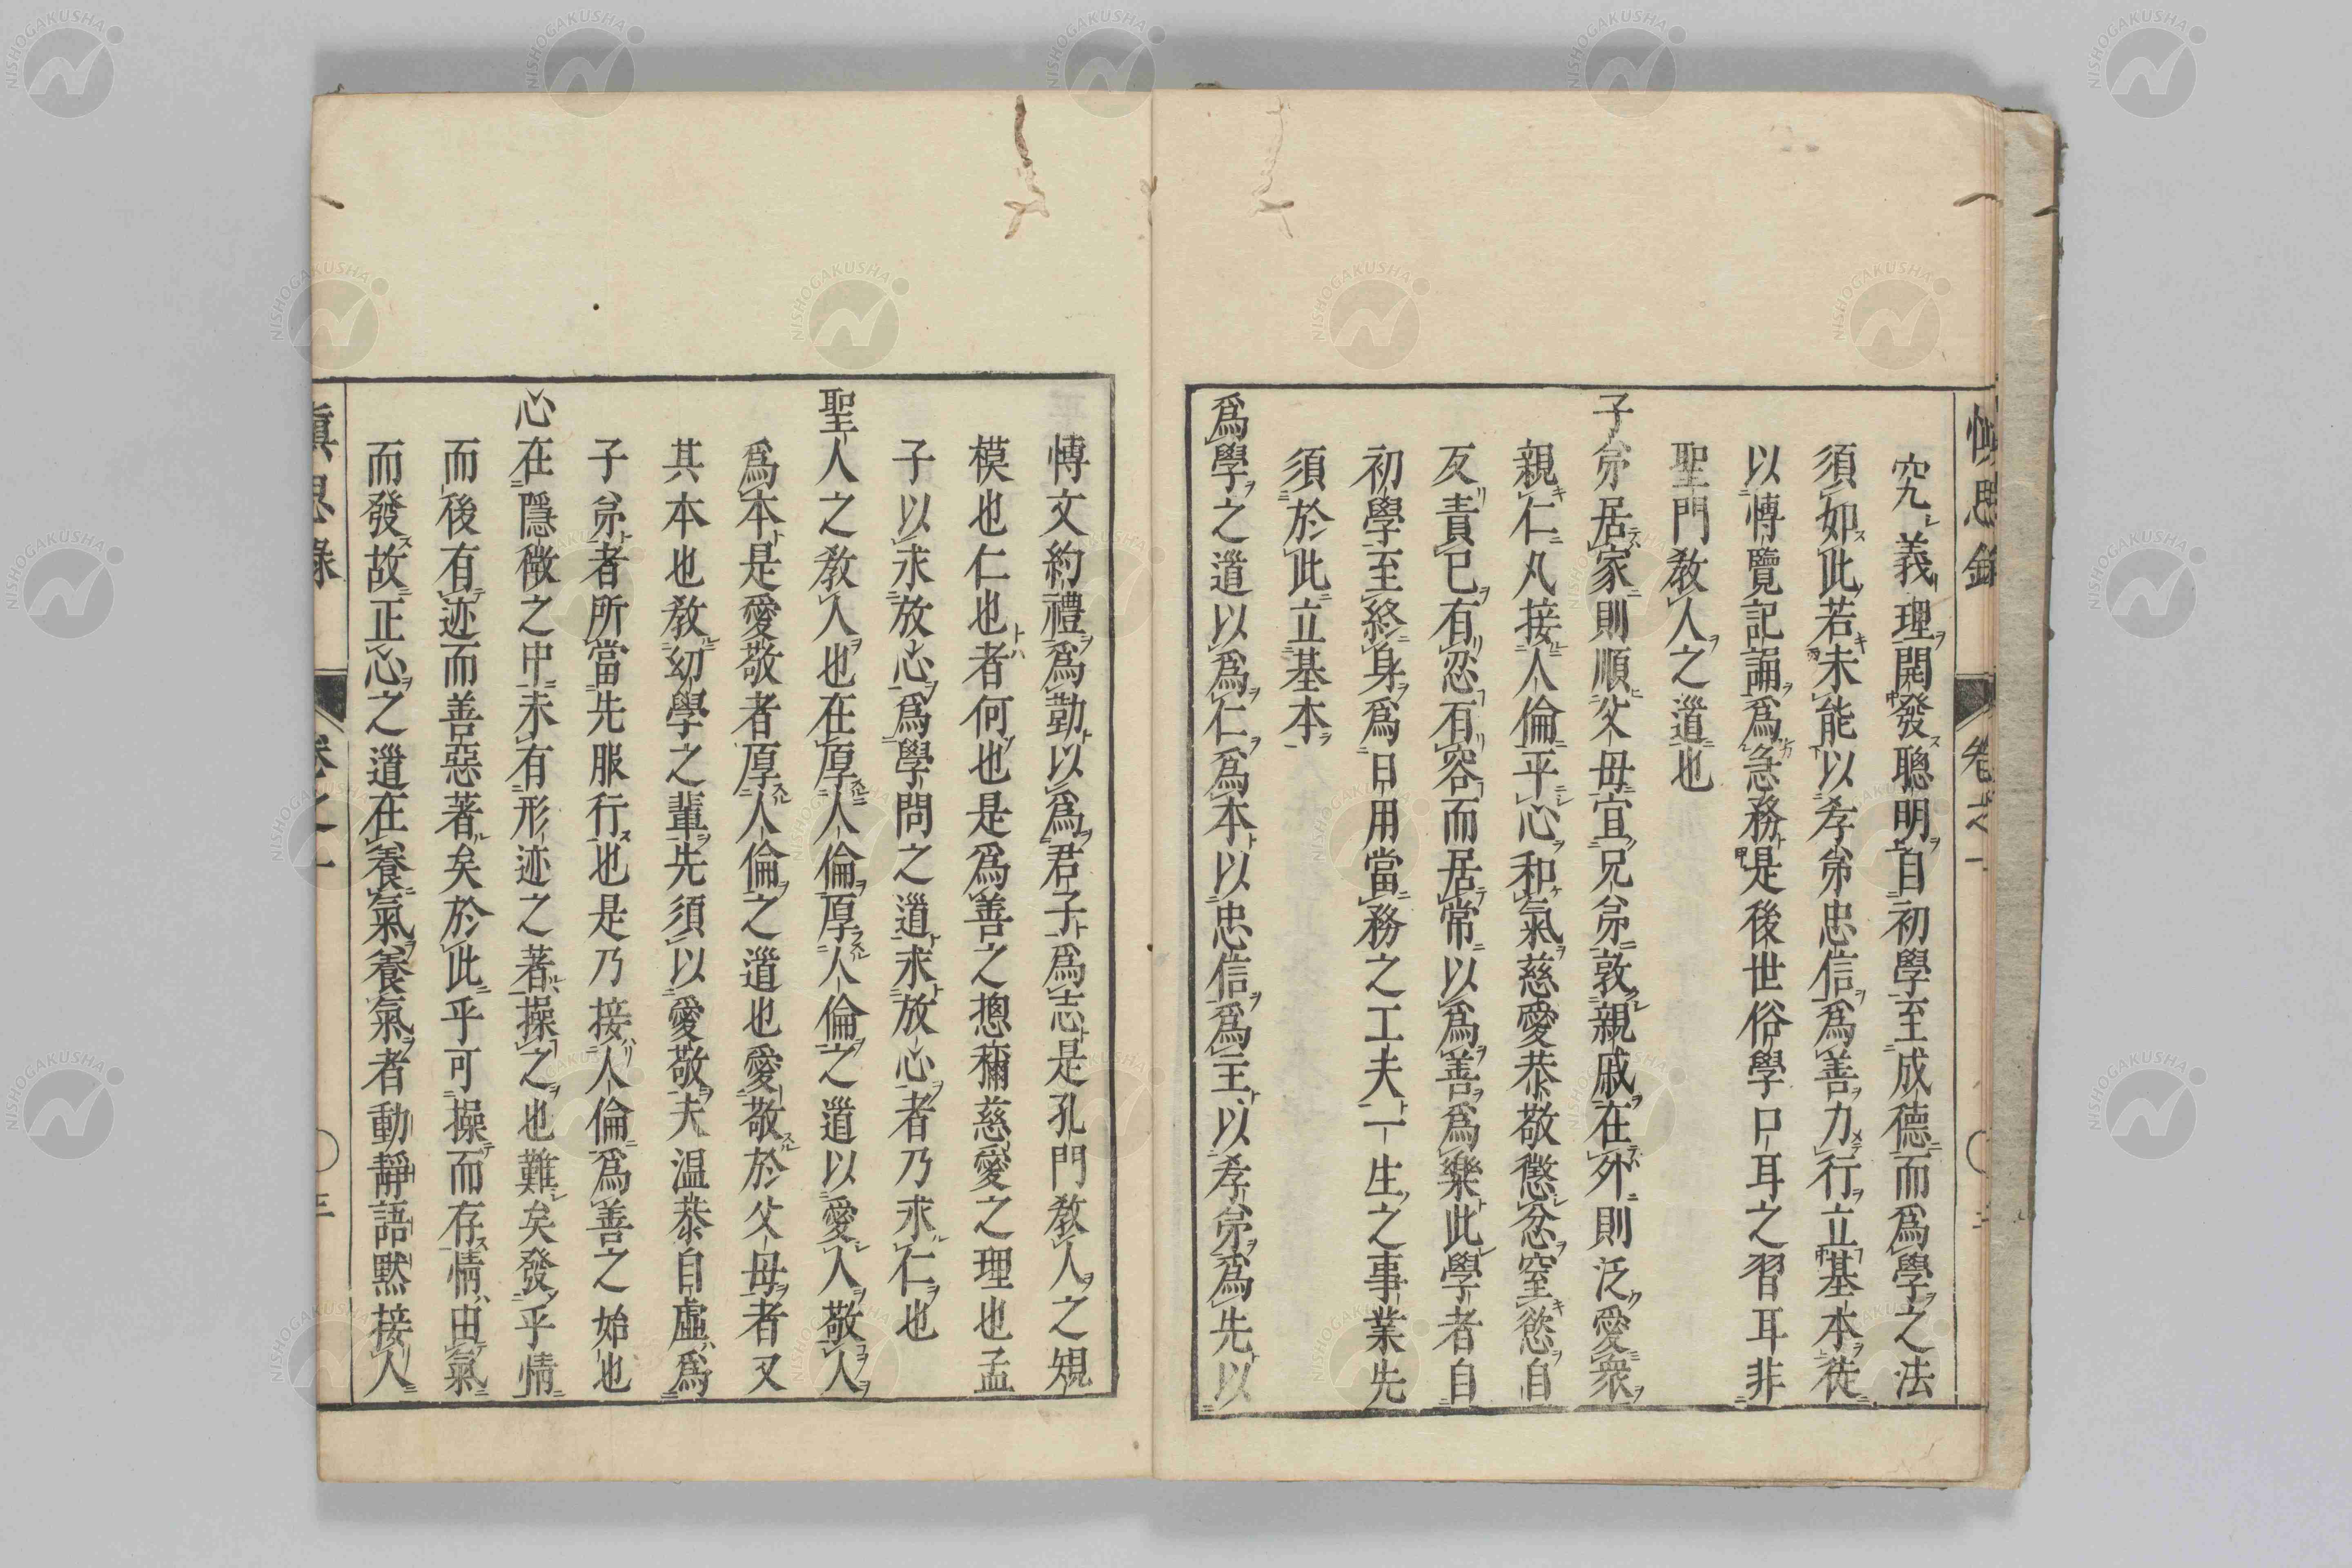 愼思錄 卷之一 二
究義理開發聰明自初學至成德而爲學之法
須如此若未能以孝弟忠信爲善力行立基本徒
以博覽記誦爲急務是後世俗學口耳之習耳非
聖門敎人之道也
子弟居家則順父母宜兄弟敦親戚在外則泛愛衆
親仁凡接人倫平心和氣慈愛恭敬懲忿窒慾自
反責已有忍有容而居常以爲善爲樂此學者自
初學至終身爲日用當務之工夫一生之事業先
須於此立基本
爲學之道以爲仁爲本以忠信爲主以孝弟爲先以
博文約禮爲勤以爲君子爲志是孔門敎人之規
模也仁也者何也是爲善之摠稱慈愛之理也孟
子以求放心爲學問之道求放心者乃求仁也
聖人之敎人也在厚人倫厚人倫之道以愛人敬人
爲本是愛敬者厚人倫之道也愛敬於父母者又
其本也敎幼學之輩先須以愛敬夫温恭自虛爲
子弟者所當先服行也是乃接人倫爲善之始也
心在隱微之中未有形迹之著操之也難矣發乎情
而後有迹而善惡著矣於此乎可操而存情由氣
而發故正心之道在養氣養氣者動靜語默接人
愼思錄 卷之一 三
NISHOGAKUSHA